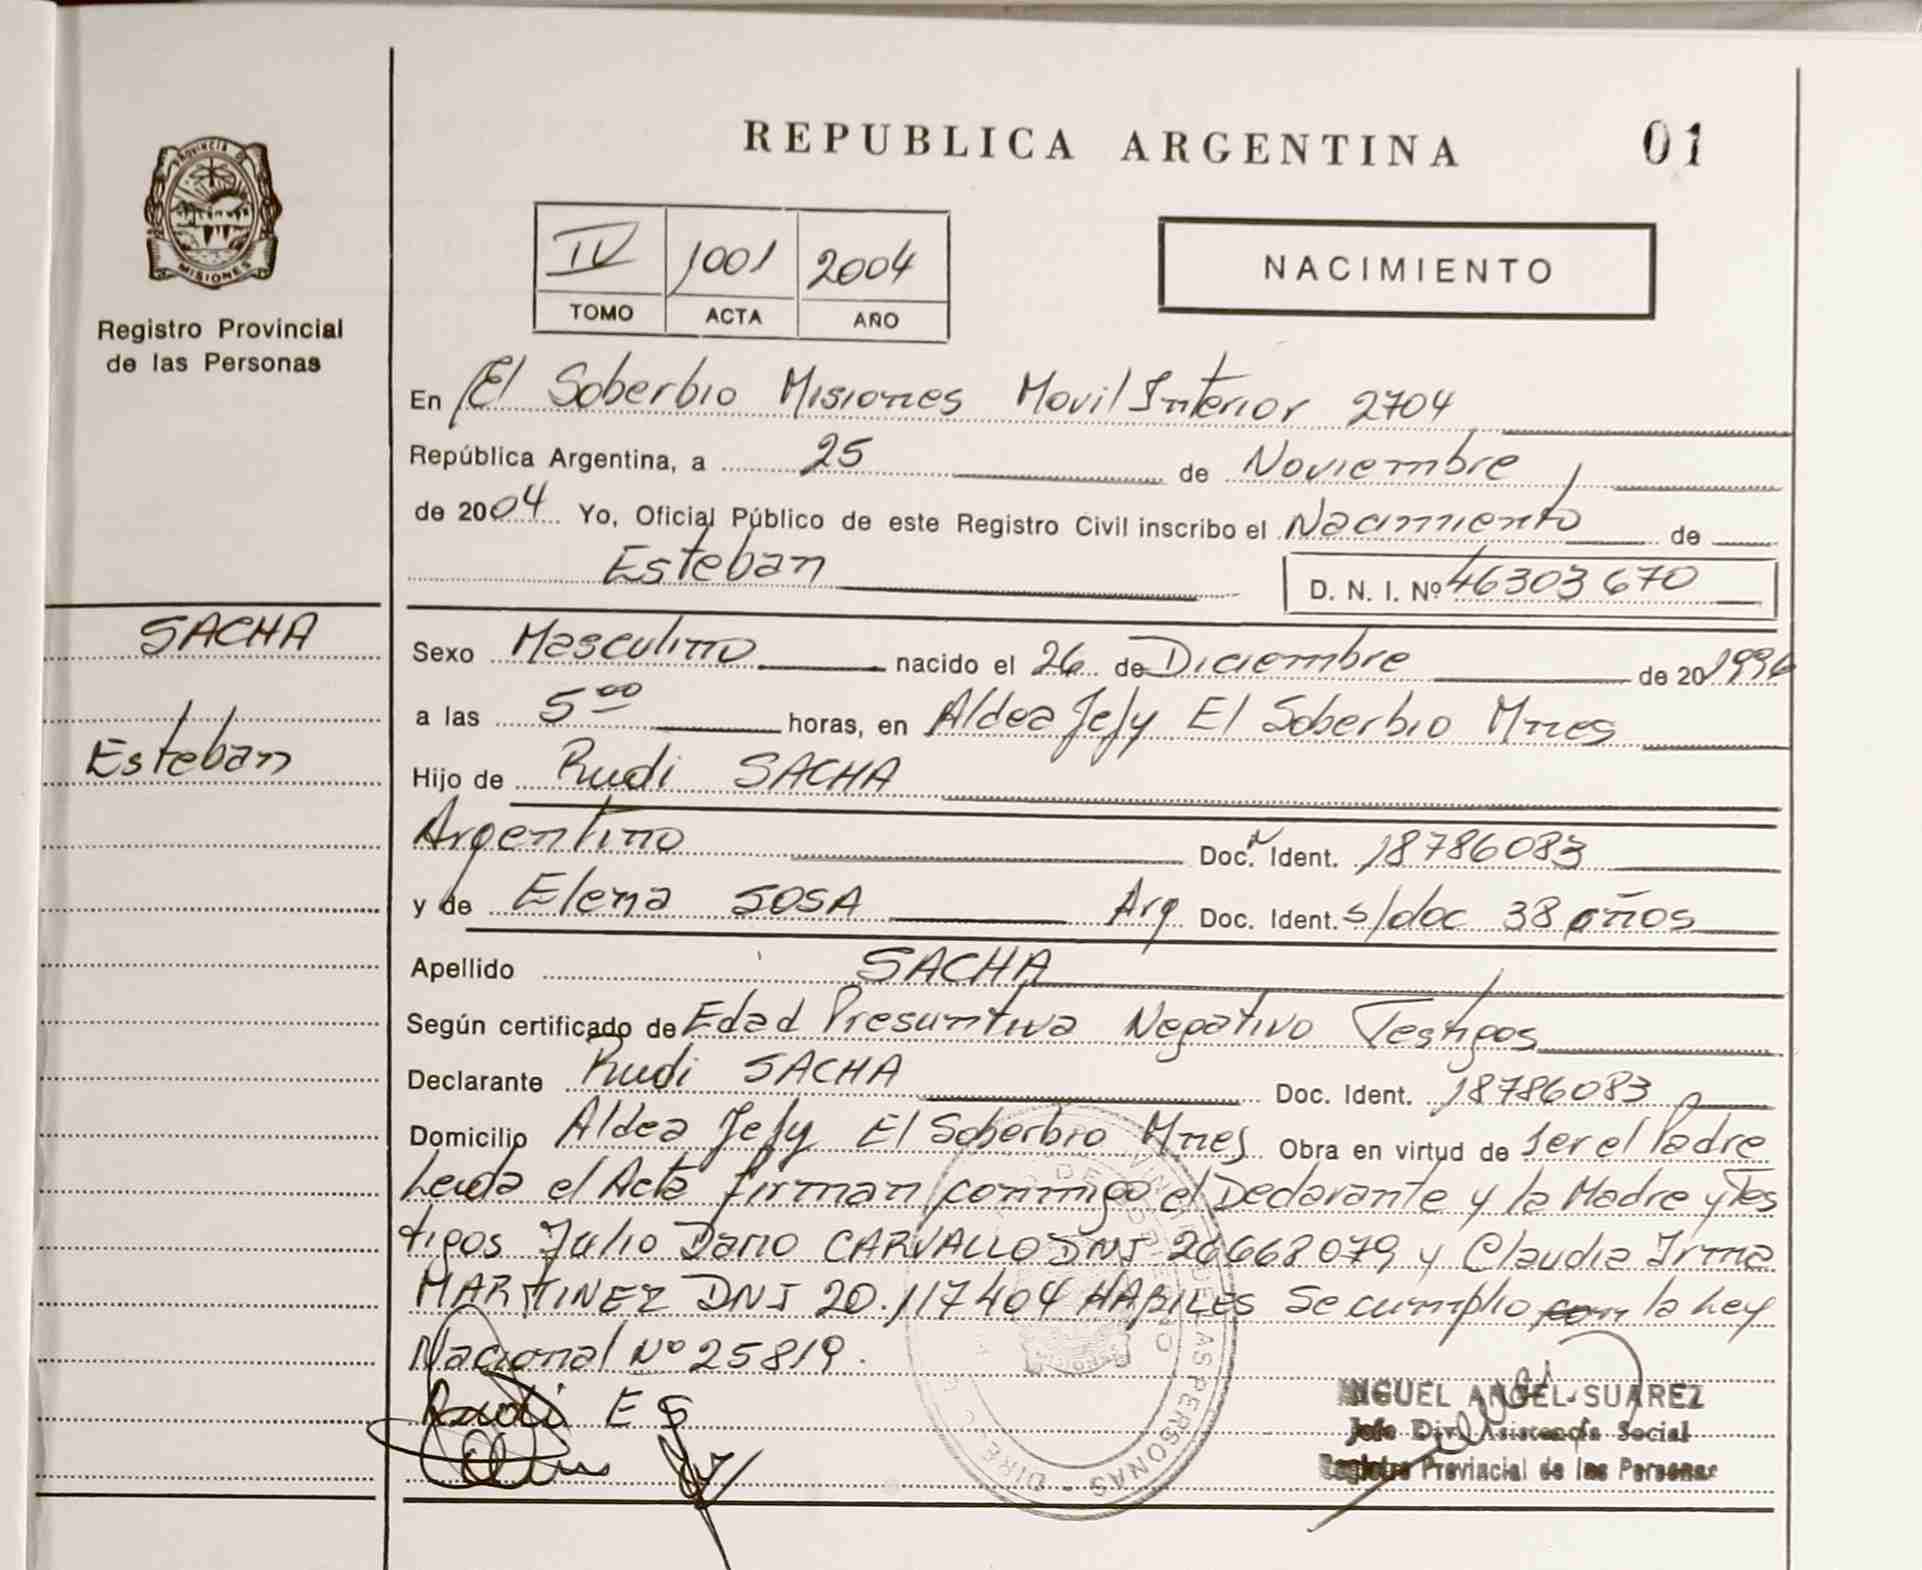 REPUBLICA ARGENTINA
01
PROVINCIA DE
MISIONES
Registro Provincial
de las Personas
IV 1001 2004
TOMO ACTA AÑO
NACIMIENTO
En El Soberbio Misiones Movil Interior 2704
República Argentina, a 25 de Noviembre
de 2004 Yo, Oficial Público de este Registro Civil inscribo el Nacimiento de
Esteban D. N. I. Nº 46303670
SACHA
Esteban
Sexo Masculino nacido el 26 de Diciembre de 20 1996
a las 5 00 horas, en Aldea Jejy El Soberbio Mnes
Hijo de Rudi SACHA
Argentino Doc. N Ident. 18786083
y de Elena SOSA Arg Doc. Ident. s/doc 38 años
Apellido SACHA
Según certificado de Edad Presuntiva Negativo Testigos
Declarante Rudi SACHA Doc. Ident. 18786083
Domicilio Aldea Jejy El Soberbio Mnes Obra en virtud de ser el Padre
Leida el Acta firman conmigo el Declarante y la Madre y Tes
tigos Julio Dario CARVALLO DNI 26668079 y Claudia Irma
MARTINEZ DNI 20.117404 HABILES Se cumplio con la Ley
Nacional Nº 25819.
Rudi E S
MIGUEL ANGEL SUAREZ
Jefe Div. Asistencia Social
Registro Provincial de las Personas